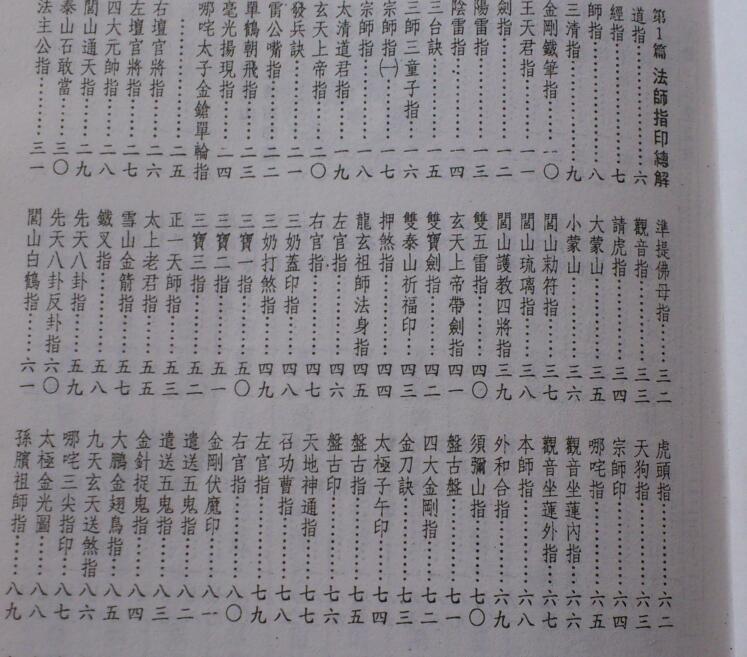 第1篇 法師指印總解
道指……六
經指……七
師指……八
三清指……九
金剛鐵筆指……一〇
王天君指……一一
劍指……一二
陽雷指……一三
陰雷指……一四
三台訣……一五
三師三童子指……一六
宗師指(一)……一七
宗師指……一八
太清道君指……一九
玄天上帝指……二〇
發兵訣……二一
雷公嘴指……二二
單鶴朝飛指……二三
毫光揚現指……二四
哪咤太子金鎗單輪指
……二五
右壇官將指……二六
左壇官將指……二七
四大元帥指……二八
閭山通天指……二九
泰山石敢當……三〇
法主公指……三一
準提佛母指……三二
觀音指……三三
請虎指……三四
大蒙山……三五
小蒙山……三六
閭山勅符指……三七
閭山琉璃指……三八
閭山護教四將指……三九
雙五雷指……四〇
玄天上帝帶劍指……四一
雙寶劍指……四二
雙泰山祈福印……四三
押煞指……四四
龍玄祖師法身指……四五
左官指……四六
右官指……四七
三奶蓋印指……四八
三奶打煞指……四九
三寶一指……五〇
三寶二指……五一
三寶三指……五二
正一天師指……五三
太上老君指……五五
雪山金箭指……五七
鐵叉指……五八
先天八卦指……五九
先天八卦反卦指……六〇
閭山白鶴指……六一
虎頭指……六二
天狗指……六三
宗師印……六四
哪咤指……六五
觀音坐蓮內指……六六
觀音坐蓮外指……六七
本師指……六八
外和合指……六九
須彌山指……七〇
盤古盤……七一
四大金剛指……七二
金刀訣……七三
太極子午印……七四
盤古指……七五
盤古印……七六
天地神通指……七七
召功曹指……七八
左官指……七九
右官指……八〇
金剛伏魔印……八一
遣送五鬼指……八二
遣送五鬼指……八三
金針捉鬼指……八四
大鵬金翅鳥指……八五
九天玄天送煞指……八六
哪咤三尖指印……八七
太極金光圖……八八
孫臏祖師指……八九